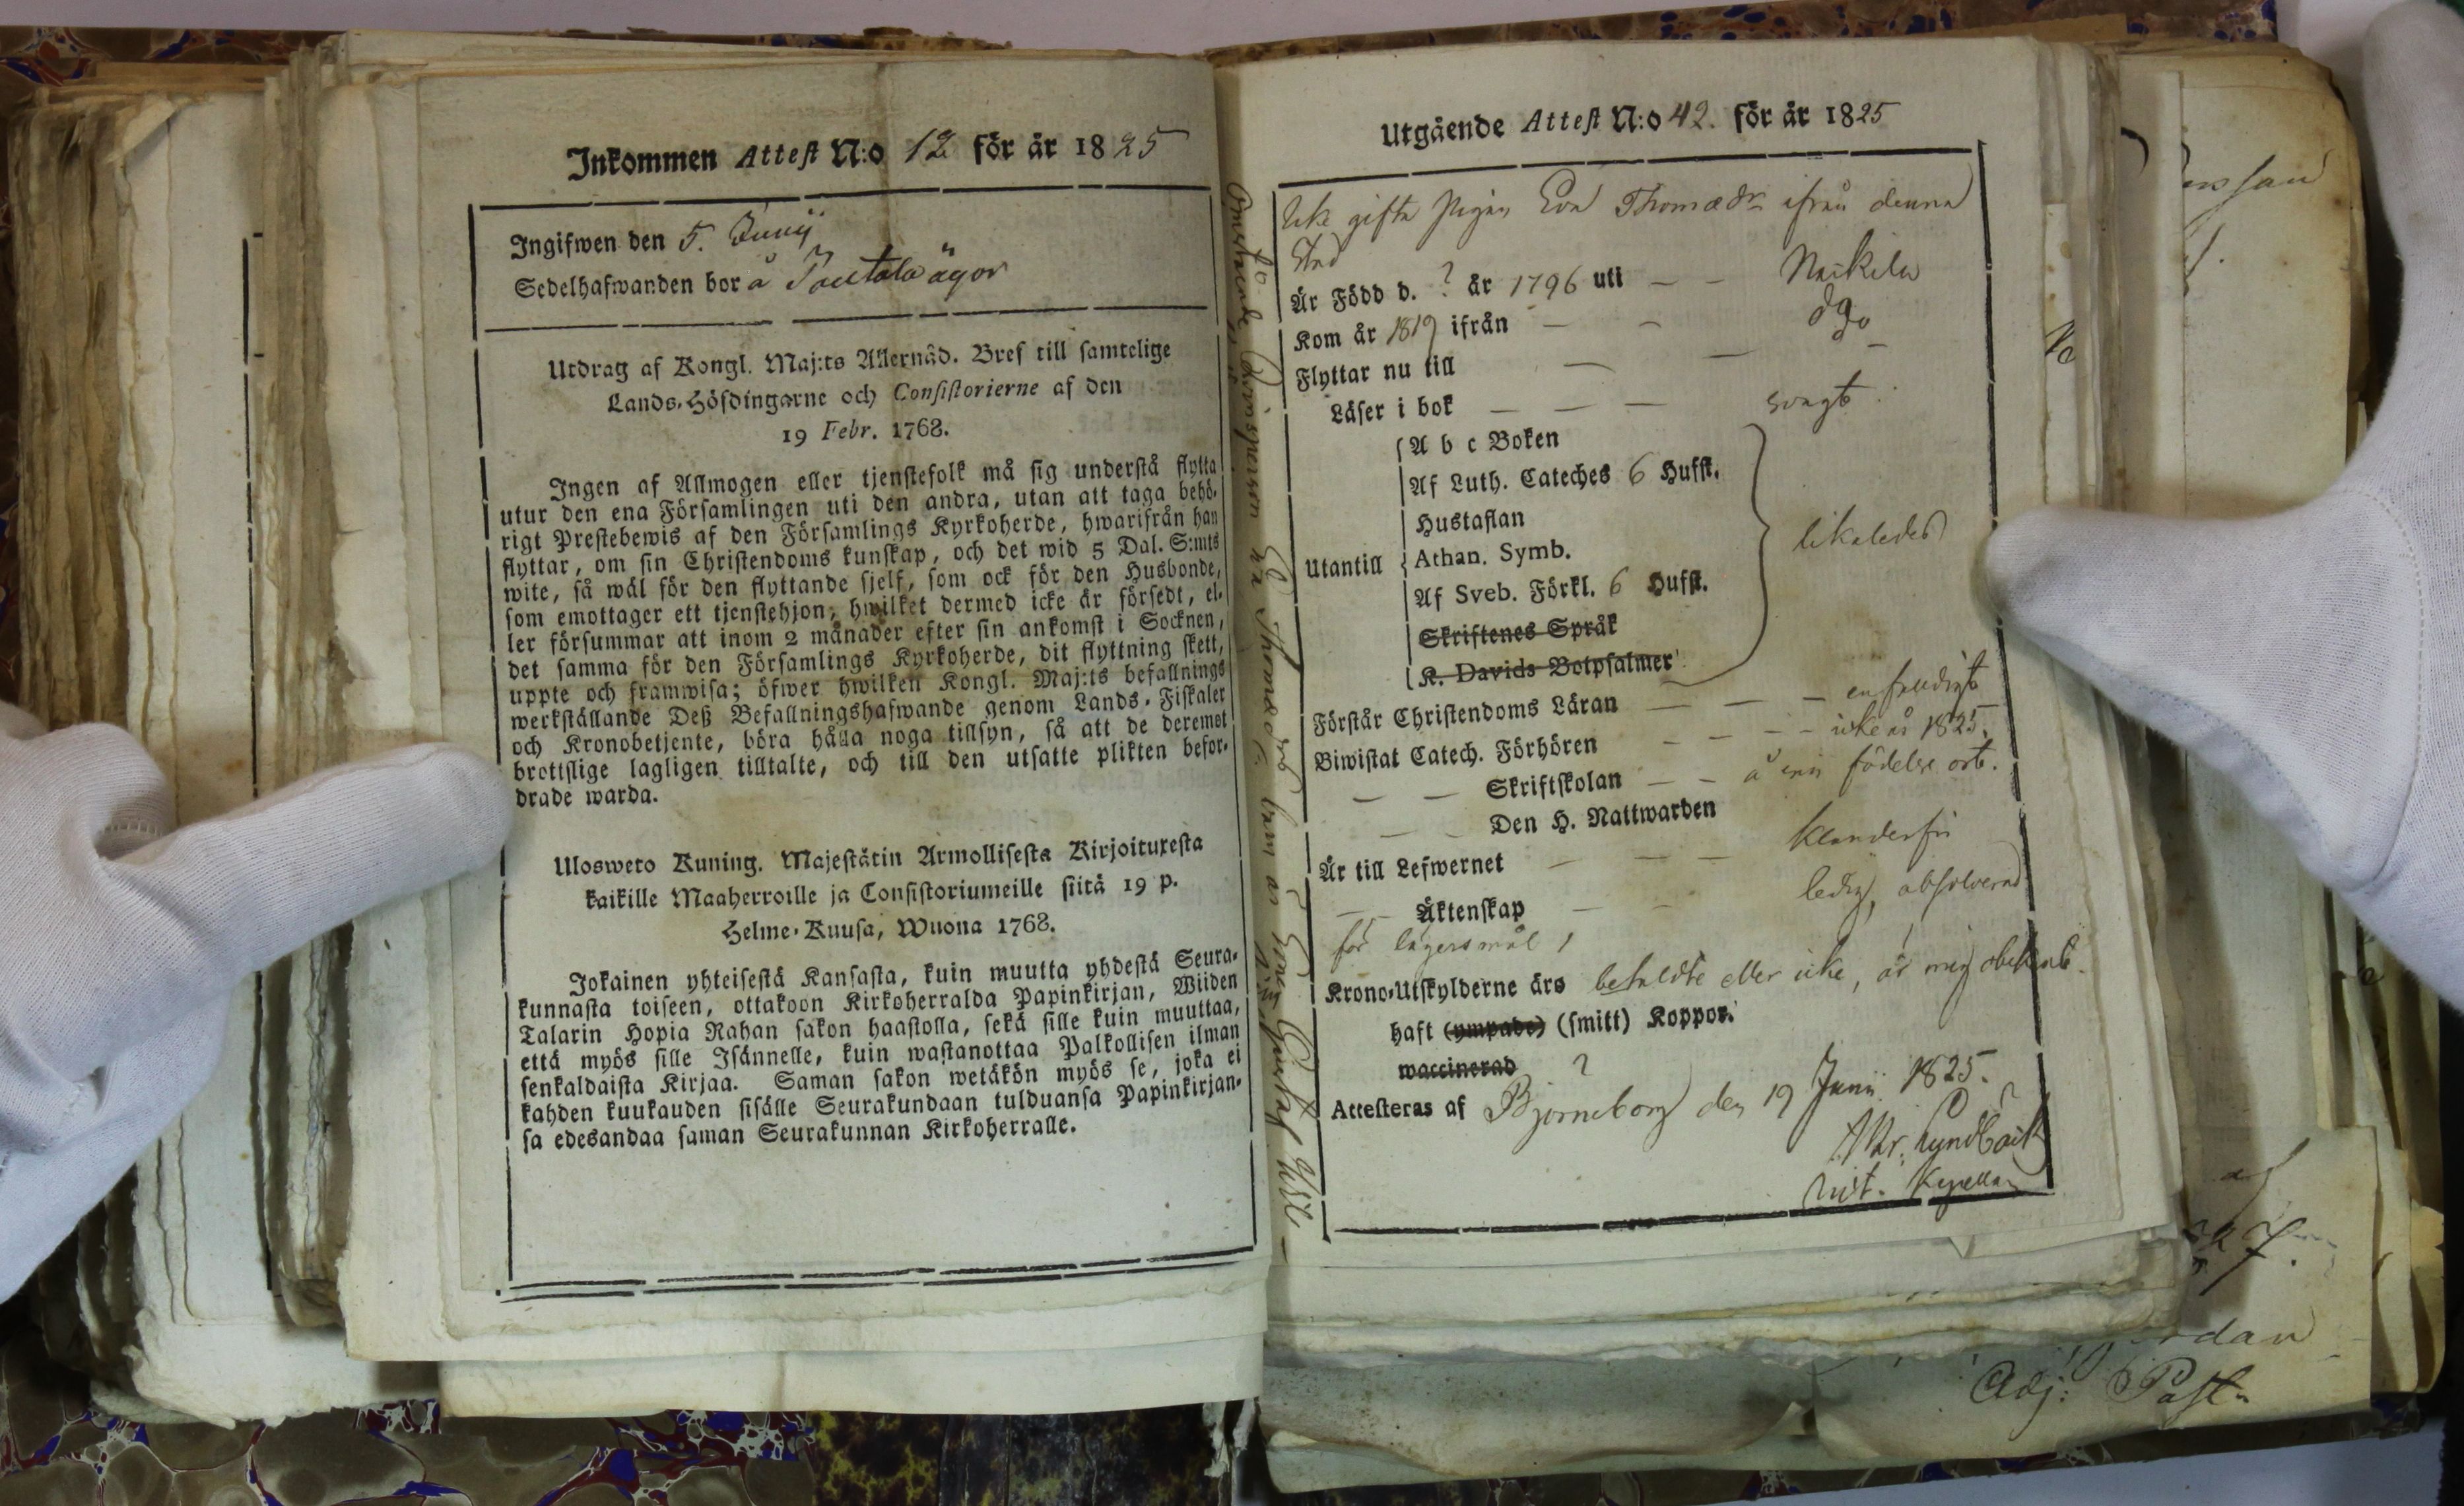 Inkommen Attest N:o 12 för år 1825
Ingifwen den 5. Junij
Sedelhafwanden bor å Toutala ägor
Utdrag af Kongl. Maj:ts Allernåd. Bref till samtelige
Lands-Höfdingarne och Consistorierne af den
19 Febr. 1768.
Ingen af Allmogen eller tjenstefolk må sig understå flytta
utur den ena Församlingen uti den andra, utan att taga behö-
rigt Prestebewis af den Församlings Kyrkoherde, hwarifrån han
flyttar, om sin Christendoms kunskap, och det wid 5 Dal. S:mts
wite, så wäl för den flyttande sjelf, som ock för den Husbonde,
som emottager ett tjenstehjon, hwilket dermed icke är försedt, el-
ler försummar att inom 2 månader efter sin ankomst i Socknen,
det samma för den Församlings Kyrkoherde, dit flyttning skett,
uppte och framwisa; öfwer hwilken Kongl. Maj:ts befallnings
werkställande Deß Befallningshafwande genom Lands-Fiskaler
och Kronobetjente, böra hålla noga tillsyn, så att de deremot
brottslige lagligen tilltalte, och till den utsatte plikten befor-
drade warda.
Ulosweto Kuning. Majestätin Armollisesta Kirjoituxesta
kaikille Maaherroille ja Consistoriumeille siitä 19 p.
Helme-Kuusa, Wuona 1768.
Jokainen yhteisestä Kansasta, kuin muutta yhdestä Seura-
kunnasta toiseen, ottakoon Kirkoherralda Papinkirjan, Wiiden
Talarin Hopia Rahan sakon haastolla, sekä sille kuin muuttaa,
että myös sille Isännelle, kuin wastanottaa Palkollisen ilman
senkaldaista Kirjaa. Saman sakon wetäkön myös se, joka ei
kahden kuukauden sisälle Seurakundaan tulduansa Papinkirjan-
sa edesandaa saman Seurakunnan Kirkoherralle.
Omstående Qvinsperson Eva Thomædr
Utgående Attest N:o 42. för år 1825
Icke gifta pigan Eva Thomædr ifrån denna
Stad
Är Född d. ? år 1796 uti Nackila
Kom år 1819 ifrån do
Flyttar nu till do
Läser i bok svagt.
A b c Boken
Af Luth. Cateches 6 Hufst.
Hustaflan
Utantill Athan. Symb. likaledes
Af Sveb. Förkl. 6 Hufst.
Skriftenes Språk
K. Davids Botpsalmer
Förstår Christendoms Läran enfaldigt
Biwistat Catech. Förhören icke år 1825.
Skriftskolan å sin födelse ort.
Den H. Nattwarden
Är till Lefwernet klanderfri
Äktenskap ledig, absolverad
för lägersmål,
Krono-Utskylderne äro betaldte eller icke, är mig obekant.
haft (ympade) (smitt) Koppor.
waccinerad ?
Attesteras af Björneborg den 19 Junii 1825.
Lyndbäck
Kapellan
Adj: Past: